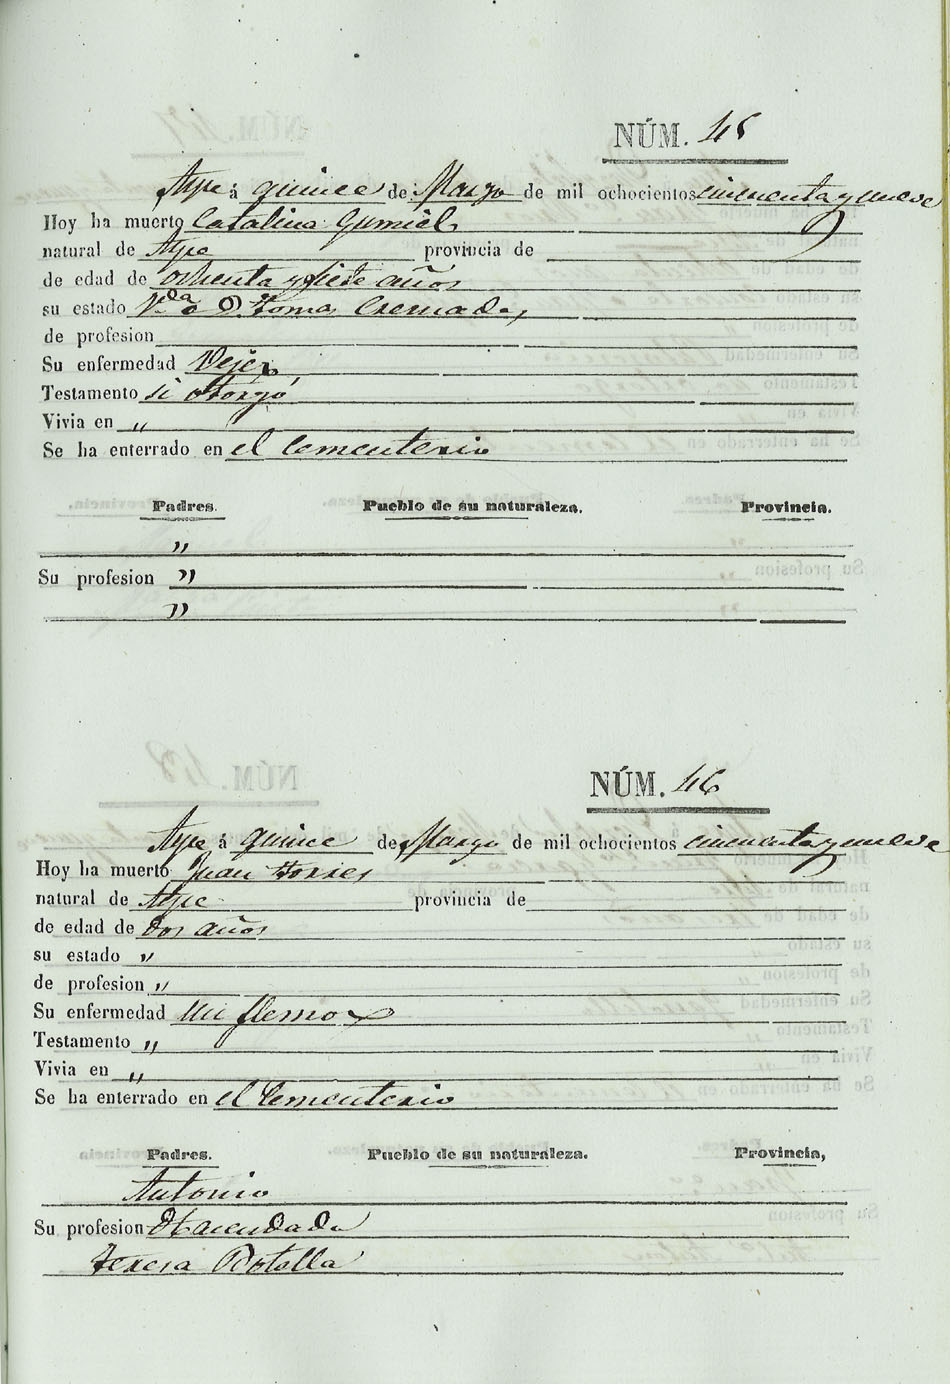 NÚM. 45
Aspe á quince de Marzo de mil ochocientos cincuenta y nueve
Hoy ha muerto Catalina Gumiel
natural de Aspe provincia de
de edad de ochenta y siete años
su estado V.da de D. Tomas Cremades
de profesion
Su enfermedad Vejez
Testamento si otorgó
Vivia en "
Se ha enterrado en el Cementerio
Padres. Pueblo de su naturaleza. Provincia.
"
Su profesion "
"
NÚM. 46
Aspe á quince de Marzo de mil ochocientos cincuenta y nueve
Hoy ha muerto Juan Torres
natural de Aspe provincia de
de edad de dos años
su estado "
de profesion "
Su enfermedad Un flemon
Testamento "
Vivia en "
Se ha enterrado en el Cementerio
Padres. Pueblo de su naturaleza. Provincia,
Antonio
Su profesion Hacendado
Teresa Botella